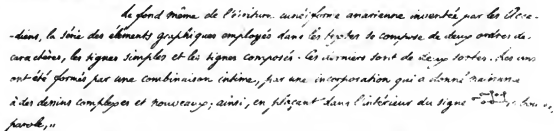 Le fond même de l'écriture cunéiforme anarienne inventée par les Acca-
-diens, la série des éléments graphiques employés dans les textes se compose de deux ordres de
caractères, les signes simples et les signes composés. Ces derniers sont de deux sortes. Les uns
ont été formés par une combinaison intime, par une incorporation qui a donné naissance
à des dessins complexes et nouveaux; ainsi, en plaçant dans l'intérieur du signe
parole,,